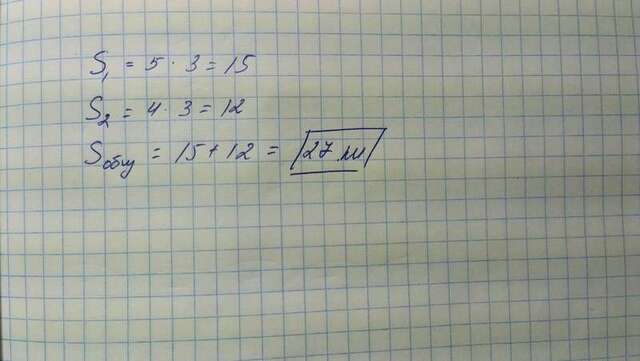 S₁ = 5 · 3 = 15
S₂ = 4 · 3 = 12
Sобщ = 15 + 12 = 27 км